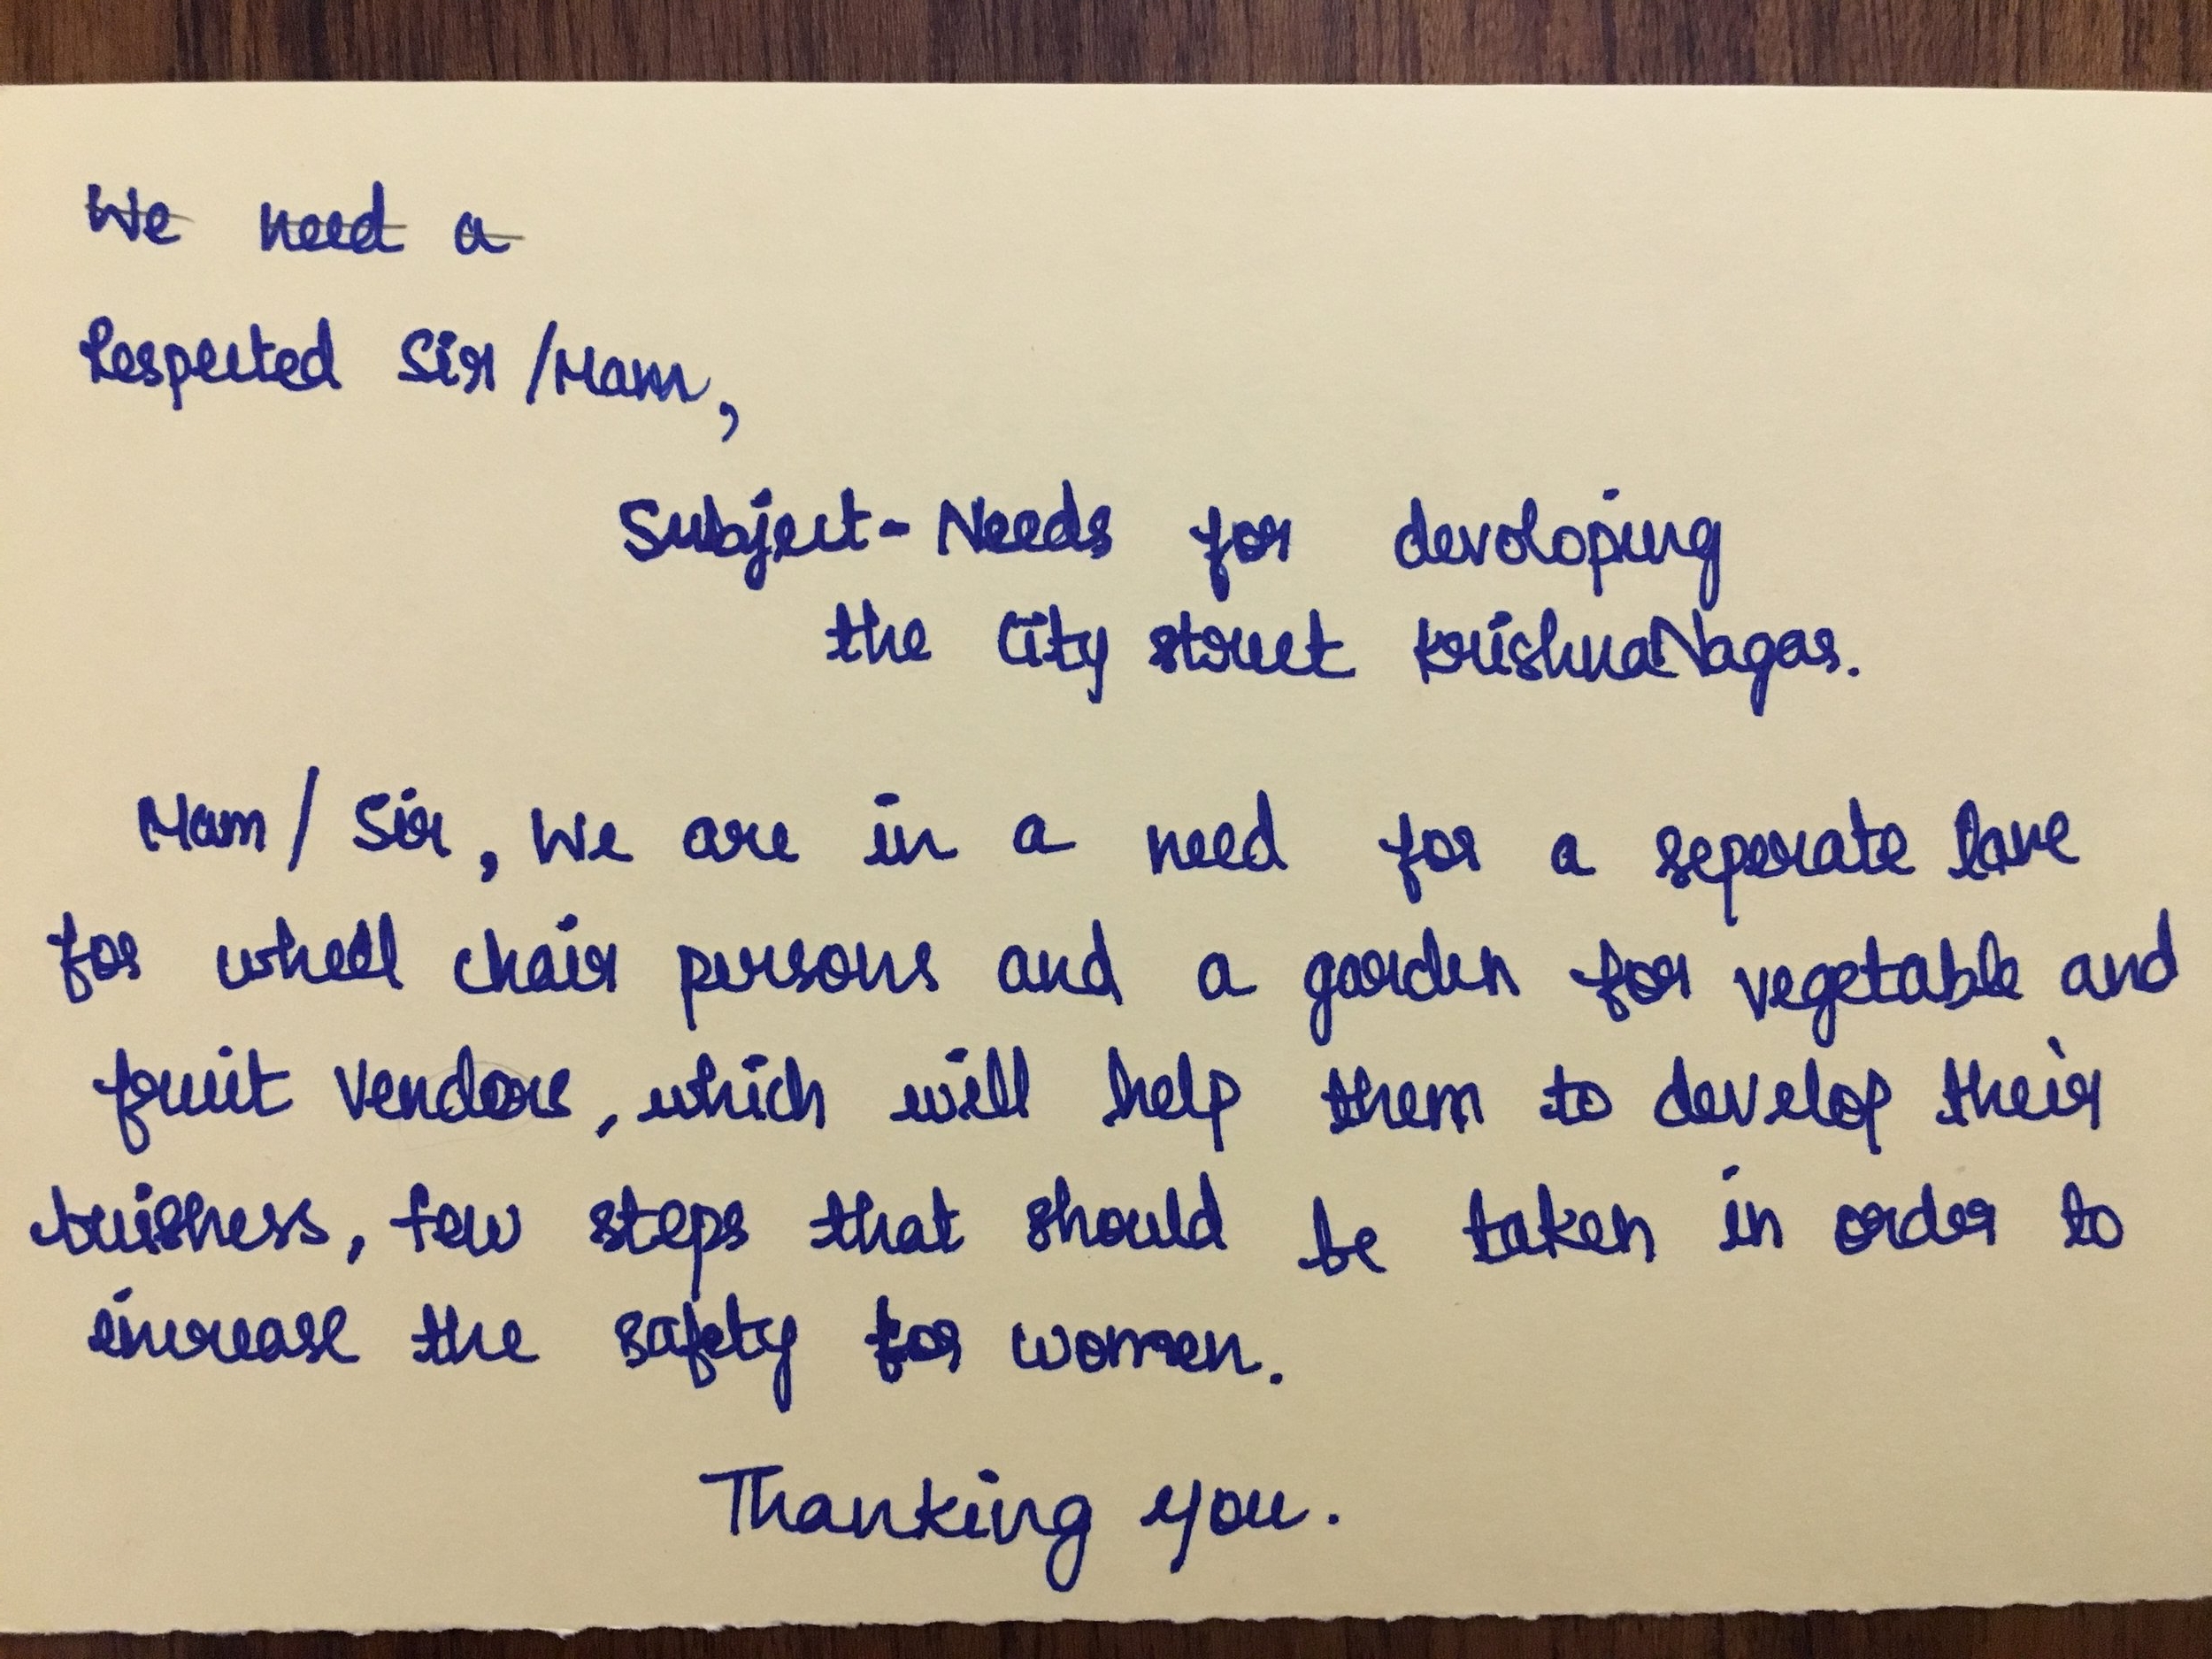 We need a
Respected Sir /Mam,
Subject- Needs for devoloping
the City street KrishnaNagar.
Mam/ Sir, We are in a need for a seperate lane
for wheel chair persons and a garden for vegetable and
fruit vendors, which will help them to develop their
buisness, few steps that should be taken in order to
increase the safety for women.
Thanking you.